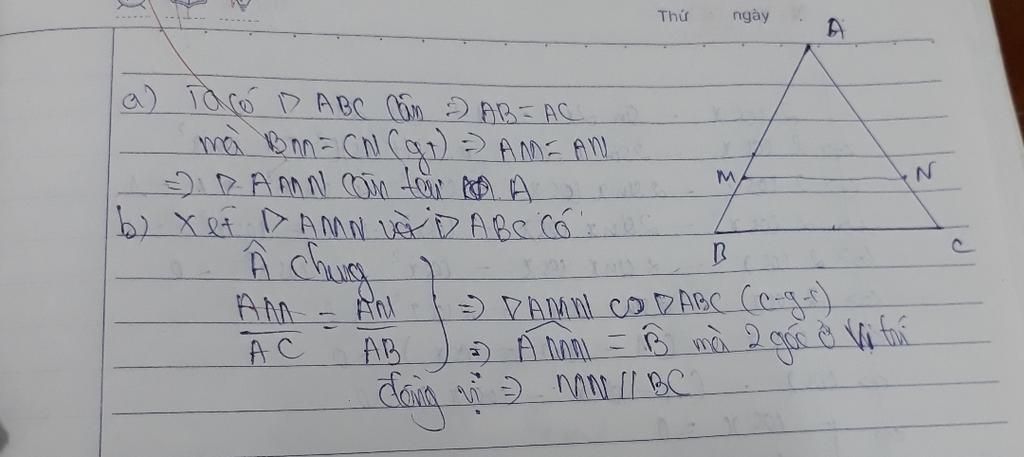 Thứ ngày
A
a) Ta có ▷ ABC cân ⇒ AB = AC
mà BM = CN (gt) ⇒ AM = AN
⇒ ▷ AMN cân tại A
M N
b) Xét ▷ AMN và ▷ ABC có
B C
Â chung
AM/AC = AN/AB } ⇒ ▷AMN ∽ ▷ABC (c-g-c)
⇒ = B̂ mà 2 góc ở vị trí
đồng vị ⇒ MN // BC